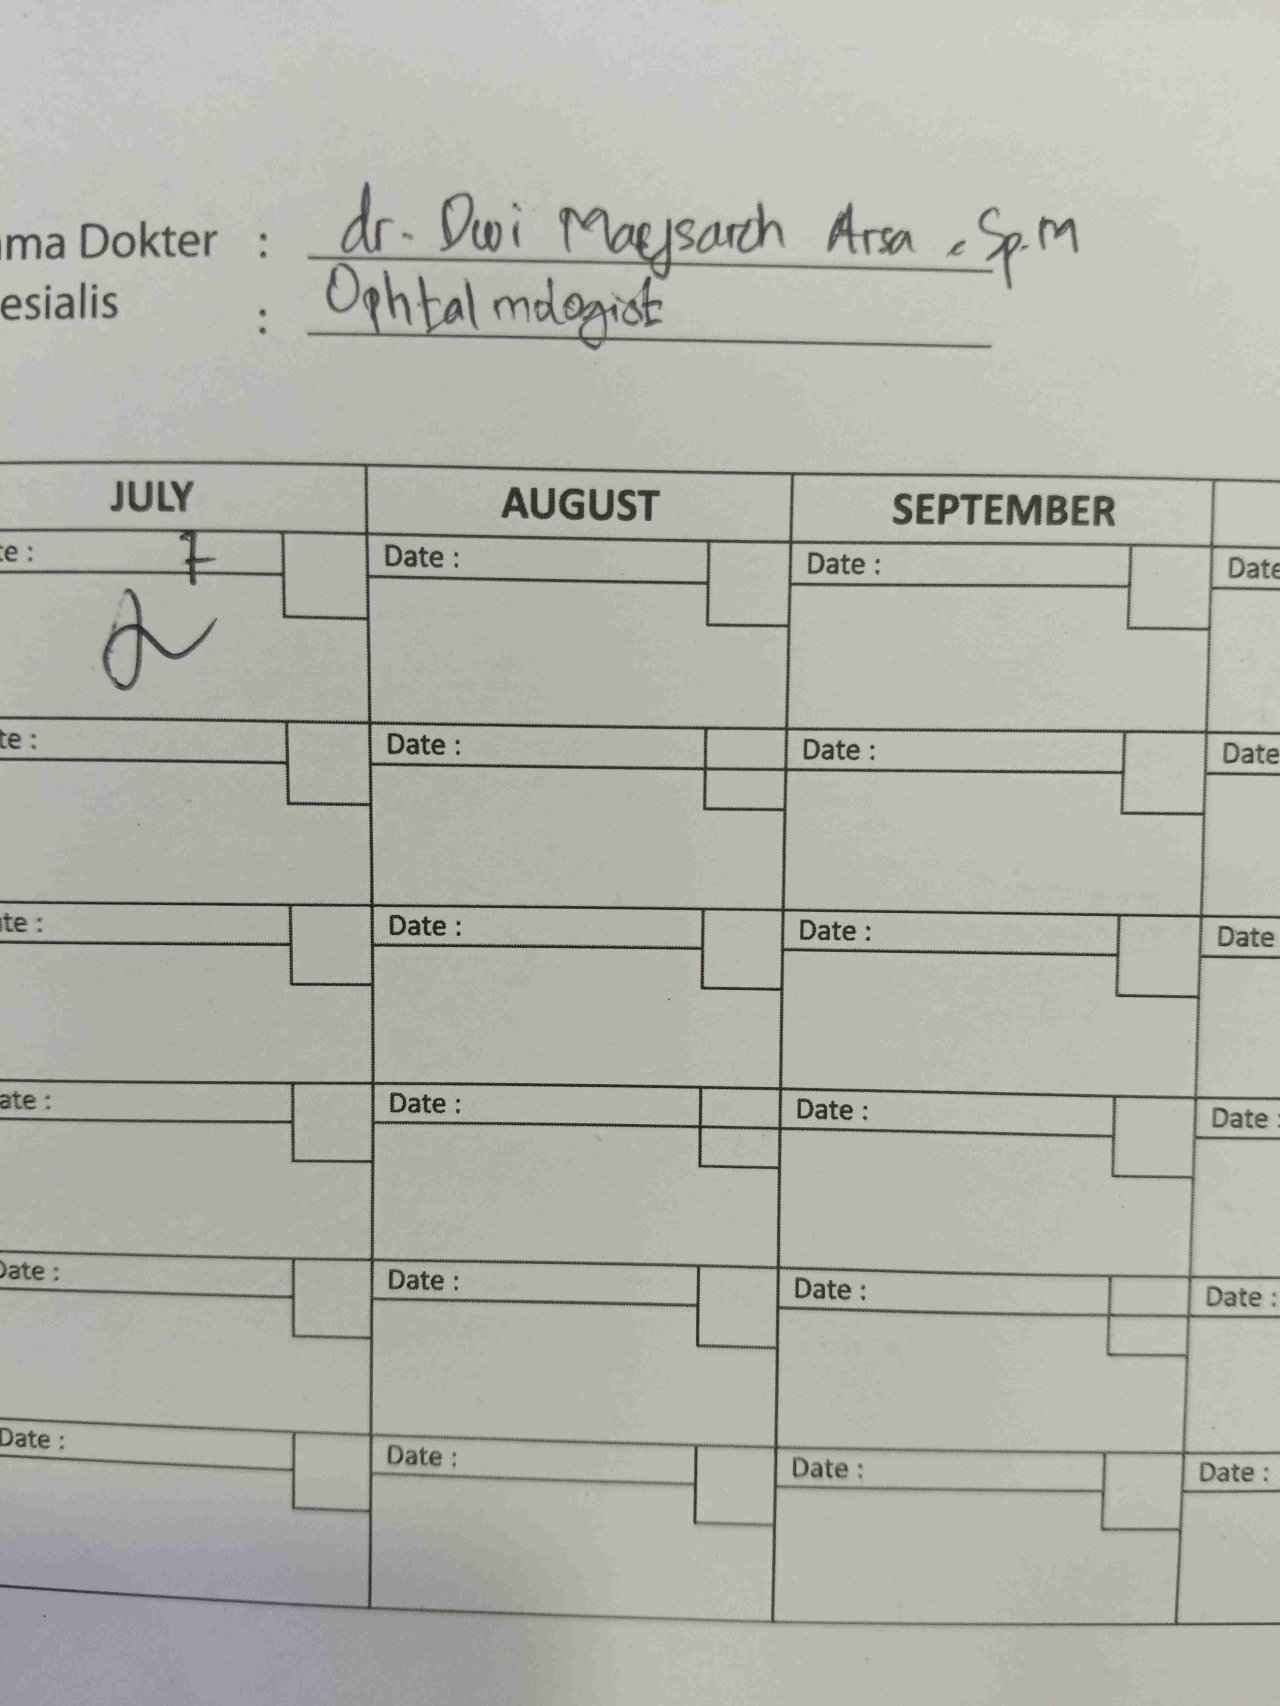 ma Dokter : dr. Dwi Maeysarah Arsa, Sp.M
esialis : Ophtalmologist
JULY AUGUST SEPTEMBER
te : 7 Date : Date : Date
te : Date : Date : Date
te : Date : Date : Date
ate : Date : Date : Date :
Date : Date : Date : Date :
Date : Date : Date : Date :